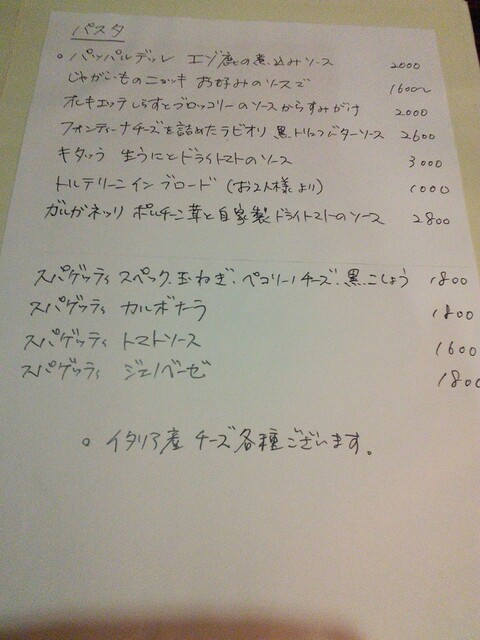 パスタ
。パッパルデッレ エゾ鹿の煮込みソース 2000
じゃがいものニョッキ お好みのソースで 1600〜
オレキエッテ しらすとブロッコリーのソース からすみがけ 2000
フォンティーナチーズを詰めたラビオリ 黒トリュフバターソース 2600
キタッラ 生うにとドライトマトのソース 3000
トルテリーニ イン ブロード (お2人様より) 1000
ガルガネッリ ポルチーニ茸と自家製ドライトマトのソース 2800
スパゲッティ スペック、玉ねぎ、ペコリーノチーズ、黒こしょう 1800
スパゲッティ カルボナーラ 1800
スパゲッティ トマトソース 1600
スパゲッティ ジェノベーゼ 1800
。イタリア産 チーズ各種ございます。